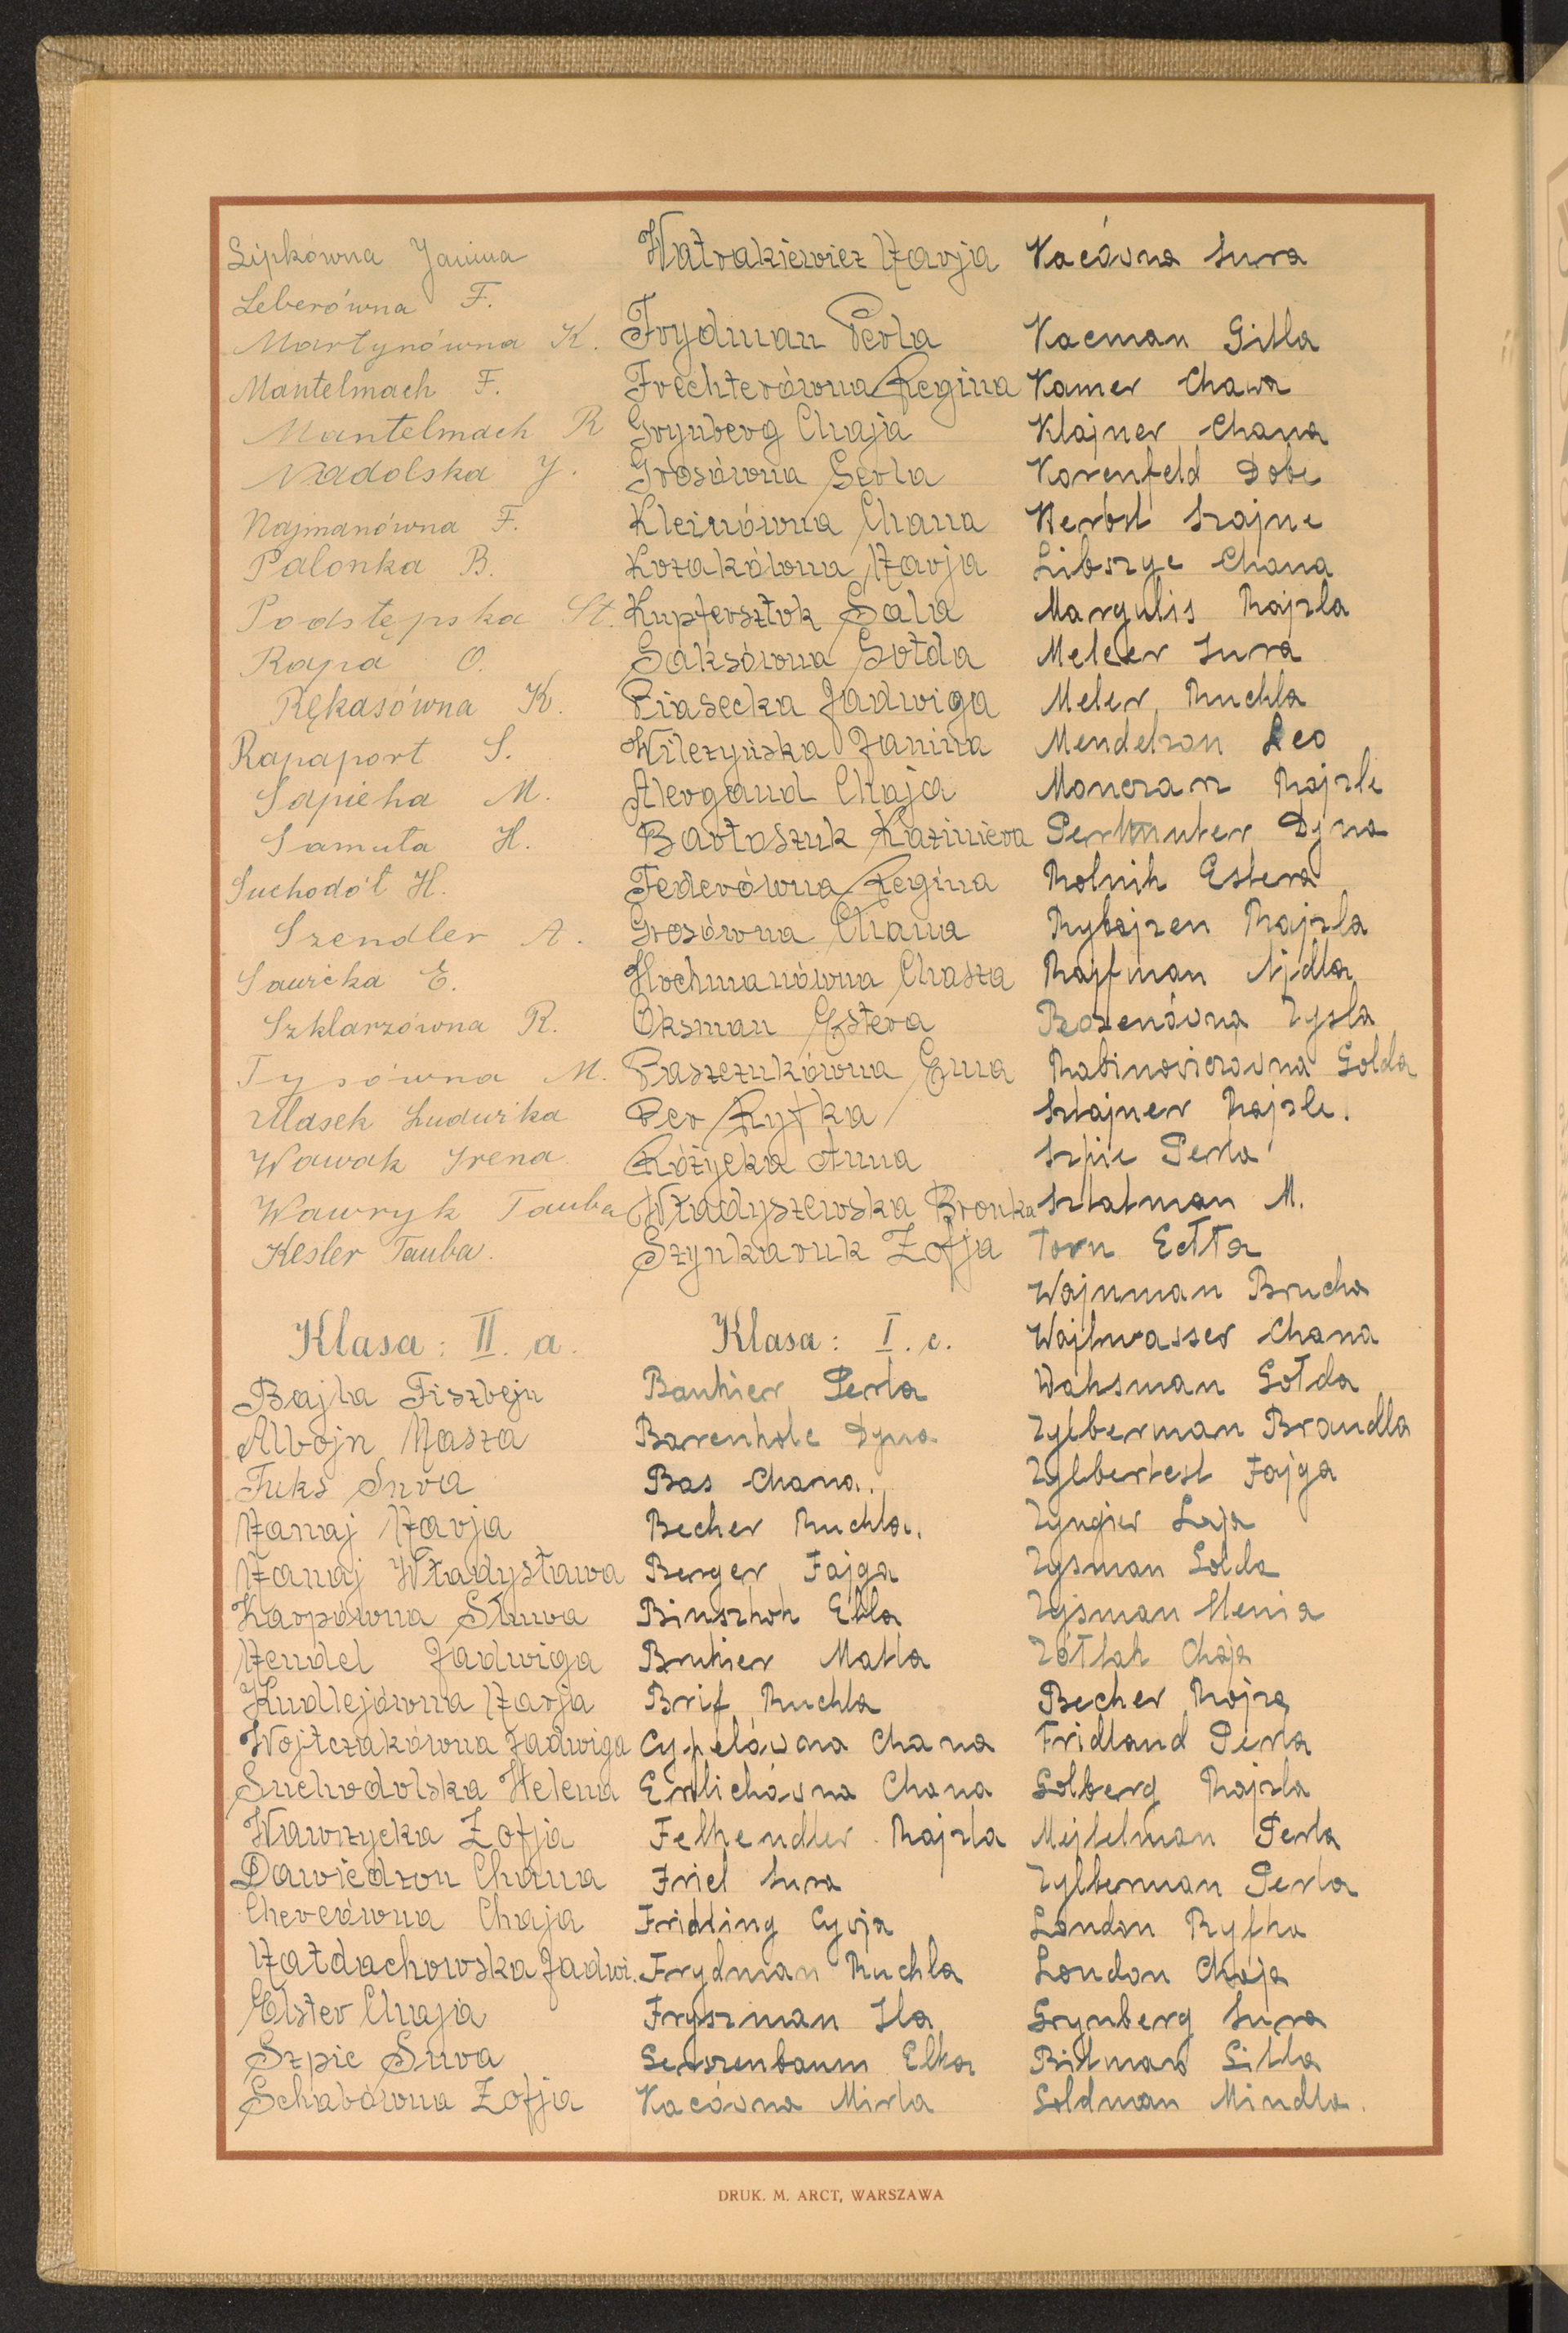 Lipkówna Janina
Leberówna F.
Martynówna K.
Mantelmach F.
Mantelmach R
Nadolska J.
Najmanówna F.
Palonka B.
Podstępska St.
Rapa O.
Rękasówna K.
Rapaport S.
Sapieha M.
Samuła H.
Suchodół H.
Szendler A.
Sawicka E.
Szklarzówna R.
Tysówna M.
Ulasek Ludwika
Wawak Irena
Wawryk Tauba
Kesler Tauba.
Klasa: II. a.
Bajla Fiszbejn
Albojn Masza
Fuks Sura
Manaj Marja
Manaj Władysława
Karpówna Sława
Mendel Jadwiga
Kudlejówna Marja
Wojtczakówna Jadwiga
Suchodolska Helena
Wawrzycka Zofja
Dawidzon Chana
Chercówna Chaja
Małdachowska Jadwi.
Elster Chaja
Szpic Sura
Schabówna Zofja
Watrakiewicz Marja
Frydman Perla
Frechterówna Regina
Grynberg Chaja
Grosówna Gerla
Kleinówna Chana
Kozakówna Marja
Kupfersztok Sala
Saksówna Gołda
Piasecka Jadwiga
Wilczyńska Janina
Alergand Chaja
Bartoszuk Kazimiera
Federówna Regina
Grosówna Chana
Hochmanówna Chasza
Oksman Estera
Paszczukówna Ema
Per Ryfka
Różycka Anna
Władyszewska Bronka
Szynkaruk Zofja
Klasa: I. c.
Bankier Perla
Barenholc Dyna
Bas Chana.
Becher Ruchla.
Berger Fajga
Binsztok Etla
Brukier Matla
Brif Ruchla
Cypelówna Chana
Erlichówna Chana
Felhendler Rajzla
Friel Sura
Fridling Cywja
Frydman Ruchla
Fryszman Ita
Gerszenbaum Elka
Kacówna Mirla
Kacówna Sura
Kacman Gitla
Kamer Chawa
Klajner Chana
Korenfeld Dobe
Herbst Szajne
Libszyc Chana
Margulis Rajzla
Melcer Sura
Meler Ruchla
Mendelson Lea
Monczarz Rajzle
Perlmuter Dyna
Rolnik Estera
Rybajzen Rajzla
Rajfman Ajdla
Rozenówna Zysla
Rabinowiczówna Golda
Sztajner Rajzle.
Szpic Perla
Sztatman M.
Torn Edtta
Wajnman Brucha
Wajswasser Chana
Wahsman Gołda
Zylberman Brandla
Zylbertest Fajga
Zyngier Laja
Zysman Golda
Zysman Menia
Zółtak Chaja
Becher Rojza
Fridland Perla
Golberg Rajzla
Mejtelman Perla
Zylberman Perla
London Ryfka
London Chaja
Grynberg Sura
Bitman Gitla
Goldman Mindla.
DRUK. M. ARCT, WARSZAWA